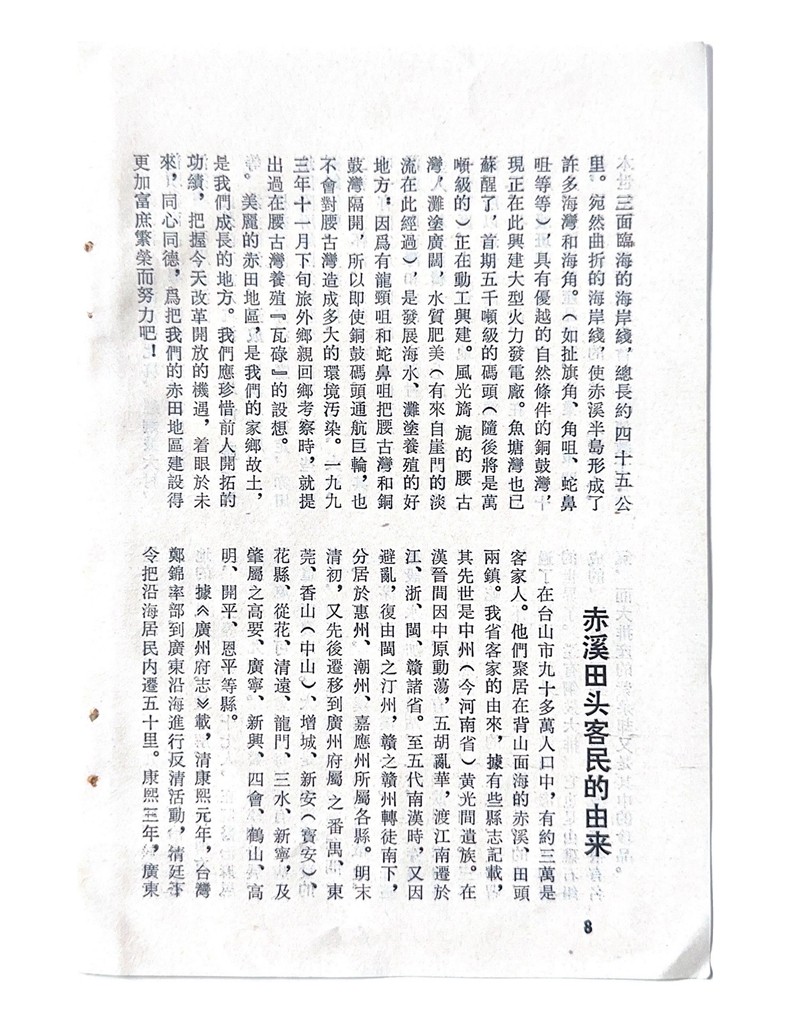 本芒三面臨海的海岸綫，總長約四十五公
里。宛然曲折的海岸綫，使赤溪半島形成了
許多海灣和海角。（如扯旗角、角咀、蛇鼻
咀等等）具有優越的自然條件的銅鼓灣，
現正在此興建大型火力發電廠。魚塘灣也已
蘇醒了，首期五千噸級的碼頭（隨後將是萬
噸級的）正在動工興建。風光旖旎的腰古
灣，灘塗廣闊，水質肥美（有來自崖門的淡
流在此經過），是發展海水、灘塗養殖的好
地方。因爲有龍頸咀和蛇鼻咀把腰古灣和銅
鼓灣隔開，所以即使銅鼓碼頭通航巨輪，也
不會對腰古灣造成多大的環境汚染。一九九
三年十一月下旬旅外鄉親回鄉考察時，就提
出過在腰古灣養殖『瓦碌』的設想。
美麗的赤田地區，是我們的家鄉故土，
是我們成長的地方。我們應珍惜前人開拓的
功績，把握今天改革開放的機遇，着眼於未
來，同心同德，爲把我們的赤田地區建設得
更加富庶繁榮而努力吧！
赤溪田头客民的由来
在台山市九十多萬人口中，有約三萬是
客家人。他們聚居在背山面海的赤溪、田頭
兩鎮。我省客家的由來，據有些縣志記載，
其先世是中州（今河南省）黄光間遺族。在
漢晉間因中原動蕩，五胡亂華，渡江南遷於
江、浙、閩、贛諸省。至五代南漢時，又因
避亂，復由閩之汀州，贛之贛州轉徒南下，
分居於惠州、潮州、嘉應州所屬各縣。明末
清初，又先後遷移到廣州府屬之番禺、東
莞、香山（中山）、增城、新安（寶安）、
花縣、從花、清遠、龍門、三水、新寧，及
肇屬之高要、廣寧、新興、四會、鶴山、高
明、開平、恩平等縣。
據《廣州府志》載，清康熙元年，台灣
鄭錦率部到廣東沿海進行反清活動，清廷下
令把沿海居民内遷五十里。康熙三年，廣東
8